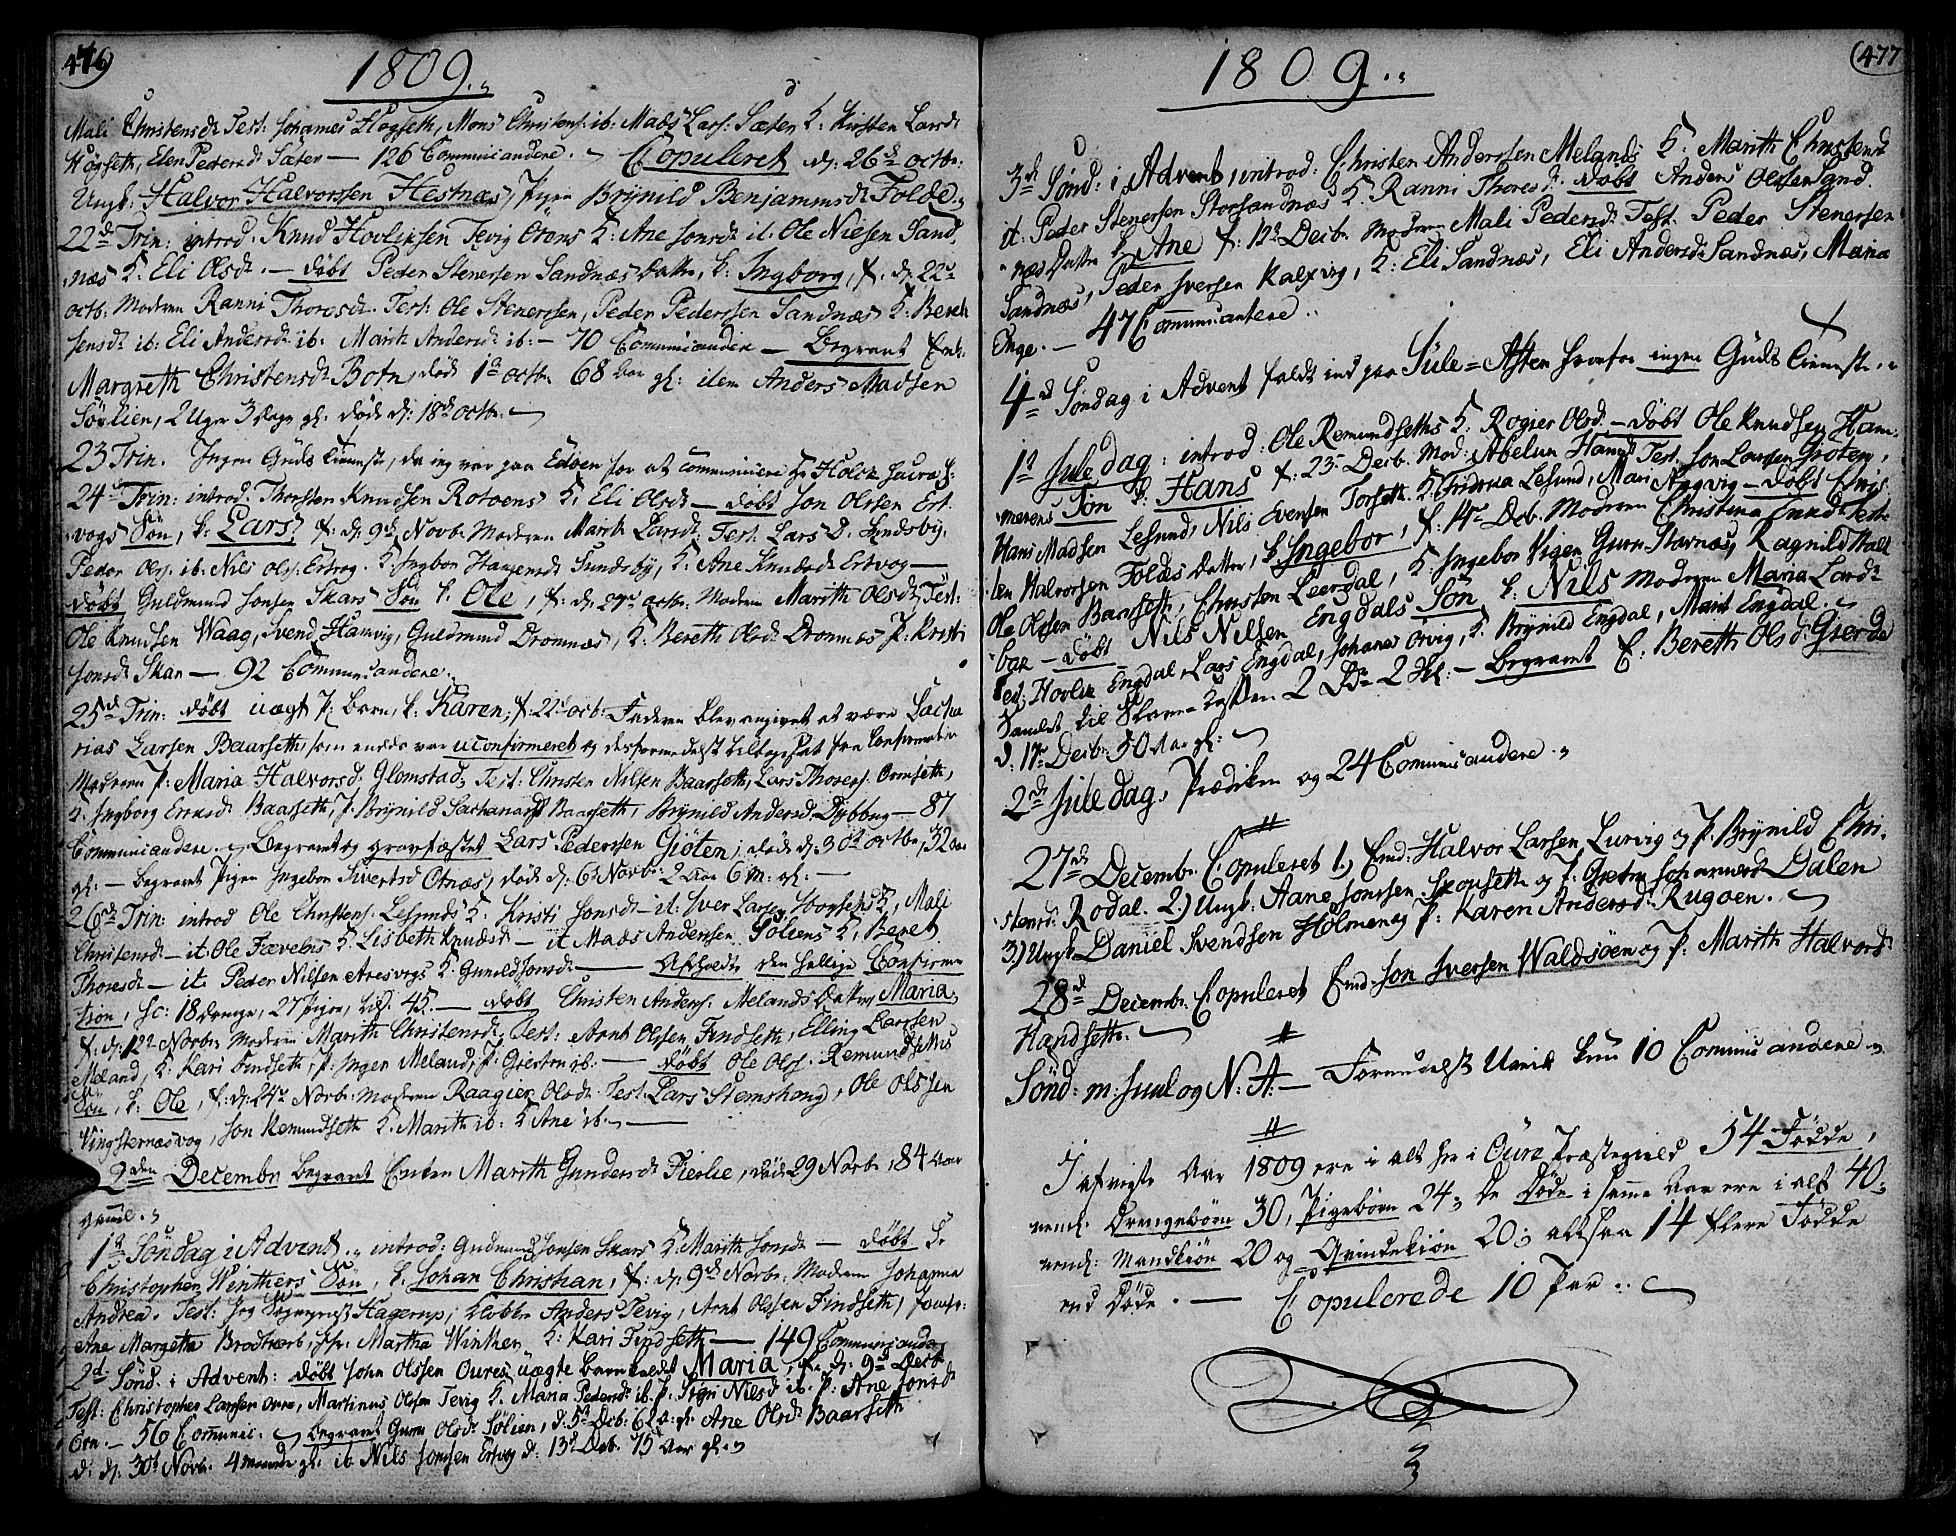 476
1809.
Mali Christensd. Test: Johanes Høgseth, Mons Christens. ib. Mads Lars. Sæter K. Kirsten Larsd.
Høgseth, Elen Pedersd. Sæter — 126 Communicandere. Copuleret d: 26de octbr.
Ungk: Halvor Halvorssen Hestnæs, Pigen Brynild Benjaminsd. Folde.
22d Trin: introd. Knud Hovliksen Tevig Orens K: Ane Jonsd. it: Ole Nielsen Sand-
næs K. Eli Olsd. — døbt Peder Stenersen Sandnæs datter, k: Ingborg, f. d: 22de
octb: Moderen Ranni Thoresd. Test: Ole Stenersen, Peder Pederssen Sandnæs K: Bereth
Jensd. ib: Eli Andersd. ib: Marith Andersd. ib: — 70 Communicander — Begravet Enk.
Margreth Christensd. Botn, død 1de octbr. 68 Aar gl: item Anders Madsen
Søvlien, 2 Uger 3 Dage gl. døde d: 18d octbr.
23 Trin. Ingen Guds Tieneste, da jeg var paa Edøen for at communicere Hr Holck
24de Trin: introd. Thorsten Knudsen Rotvens K. Eli Olsd. — døbt Jon Olssen Ert-
vogs Søn, k: Lars, f: d: 9de Novb. Moderen Marith Larsd. Test. Lars D. Sundsbye,
Peder Ols. ib. Nils Ols. Ertvog. K. Ingbor Hansensd. Sundsby, K. Ane Knudsd. Ertvog —
døbt Guldmund Jonsen Skars Søn k. Ole, f: d: 27de octbr. Moderen Marith Olsd. Test:
Ole Knudsen Waag, Svend Hamvig, Guldmund Dromnæs, K: Bereth Olsd. Dromnes P: Kristi
Jonsd. Skar — 92 Communicandere.
25d Trin: døbt uægt P: Barn, k: Karen, f: 22de octb. Faderen blev angivet at være Sacha-
rias Larsen Baarseth, som endda var uconfirmeret og desformedelst tilbagesat fra Confirmation
Moderen P: Maria Halvorsd. Glomstad, Test: Christen Nilsen Baarseth, Lars Thores. Ormseth,
K. Ingborg Ericsd. Baarseth, P. Brynild Sachariasd. Baarseth, Brynild Andersd. Dybbong — 87
Communicandere. Begravet og gravfæstet Lars Pederssen Giøten, døde d: 30te octbr, 32 Aar
gl: — begravet Pigen Ingebor Sivertsd. Otnæs, død d: 6te Novb: 2 Aar 6 M: gl: —
26de Trin: introd Ole Christens. Lesunds K: Kristi Jonsd. — it: Iver Larsen Høgseths K, Mali
Christensd. — it: Ole Fævelens K. Lisbeth Knudsd. — it Mads Anderssen Søliens K, Beret
Thoresd. — it: Peder Nilsen Aresvigs K. Gunild Jonsd. — Afholdte den hellige Confirma-
tion, sc: 18 Drenge, 27 Piger, tils. 45. — døbt Christen Anders. Melands datter Maria,
f: d: 12te Novbr. Moderen Marith Christensd. Test: Arnt Olssen Findseth, Elling Larssen
Meland, K: Kari Findseth, P. Inger Meland, P: Giertru ib. — døbt Ole Ols: Remundseths
Søn, k: Ole, f. d: 24de Novb. Moderen Raagier Olsd. Test. Lars Stemshoug, Ole Olssen
Vingsternæsvog, Jon Remundseth K. Marith ib: K Ane ib. —
2den Decembr begravet Enken Marith Gundersd. Fieslie, døde 29 Novbr, 84 Aar
gaml.
1de Søndag i Advent. introd: Gudmund Jonsen Skars K: Marith Jonsd. — døbt Sr
Christopher Winthers Søn, k. Johan Christian, f: d: 9de Novbr. Moderen Johanna
Andrea. Test: Jeg Sogneprest Hagerup, Klokker Anders Tevig, Arnt Olssen Findseth, Jomfr:
Ane Margetha Brodtkorb, Jfr. Martha Winther, K: Kari Findseth — 149 Communicander
2d Sønd. i Advent: døbt John Olssen Oures uægte Barn kaldt Maria, f. d: 9de Decb.
Test: Christopher Larssen Oure, Martinus Olssen Tevig K. Maria Pedersd. ib. P. Sigri Nilsd. ib. P: Ane Jonsd.
— 56 Communic. Begravet Guru Olsd. Sølien, d: 5te Decb: 62 A: gl. Ane Olsd. Baarseth
d: d: 30te Novbr. 4 maaneder gl. it. Nils Jonssen Ertvog d: 13de Decb. 75 Aar gl.
477
1809.
3de Sønd: i Advent introd: Christen Anderssen Melands K. Marith Christensd
it. Peder Stenersen Storsandnæs K. Ranni Thoresd. døbt Anders Olssen Sand-
næs Datter k: Ane f: 12te Decbr. Moderen Mali Pedersd. Test. Peder Stenersen
Sandnæs, Peder Iversen Kalsvig, K: Eli Sandnæs, Eli Andersd. Sandnæs, Maria
Enge. — 47 Communicantere.
4d Søndag i Advent faldt ind paa Jule-Aften hvorfor ingen Guds Tieneste.
1te Juledag: introd: Ole Remundseths K. Rogier Olsd. — døbt Ole Knudsen Ham-
merens Søn k: Hans f: 23de Decb. Mod: Abelun Hansd. Test. Jon Larssen Giøten,
Hans Madsen Lesund, Nils Evensen Torseth. K. Fridrica Lesund, Mari Aagvig — døbt Chris-
ten Halvorssen Foldes Datter, k. Ingebor, f: 14de Deb. Moderen Christina Test:
Ole Olssen Baarseth, Christen Leerdal, K Ingebor Vigen Guru Stavnæs, Ragnild Hall-
bak — døbt Nils Nilssen Engdals Søn k. Nils Moderen Maria Larsd.
Test: Hovlik Engdal, Lars Engdal, Johanes Orvig, K. Brynild Engdal, Marit Engdal.
Samlet til Skoler kasten 2 Rd. 2 — Begravet E: Bereth Olsd. Gierde
d. 17de Decbr. 50 Aar gl:
2de Juledag. Prædiken og 24 Communicandere.
27de Decembr Copuleret 1.) Enkm: Halvor Larsen Lurvig og P. Brynild Chri-
stensd. Rodal. 2.) Ungk: Aane Jonssen Skoseth og P. Gretru Johannesd. Dalen
3) Ungk. Daniel Svendsen Holmen og P. Karen Andersd. Rugoen.
28de Decembr. Copuleret Enkm: Jon Iversen Waldsøen og P. Marith Halvorsd.
Handseth.
Sønd: m: Juul og N: A: — Formedelst Uveir kun 10 Communicandere.
I afvigte Aar 1809 ere i alt her i Øure Præstegield 54 Fødde,
neml: Drengebørn 30, Pigebørn 24; De Døde i samme Aar ere i alt 40;
neml: Mandkiøn 20 og Qvindekiøn 20; altsaa 14 flere Fødde
end Døde. — Copulerede 10 Par.